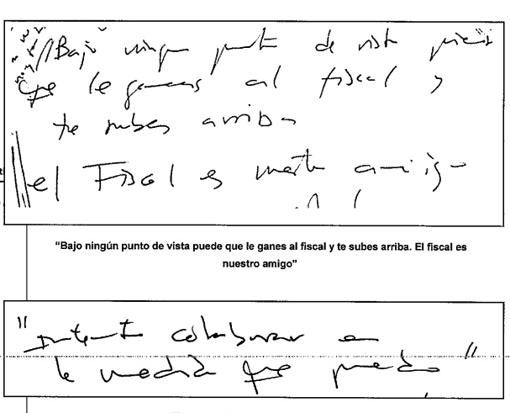 Bajo ningun punto de vista
que le ganas al fiscal y
te subes arriba
el Fiscal es nuestro amigo
"Bajo ningún punto de vista puede que le ganes al fiscal y te subes arriba. El fiscal es
nuestro amigo"
"Intento colaborar en
la medida que puedo"